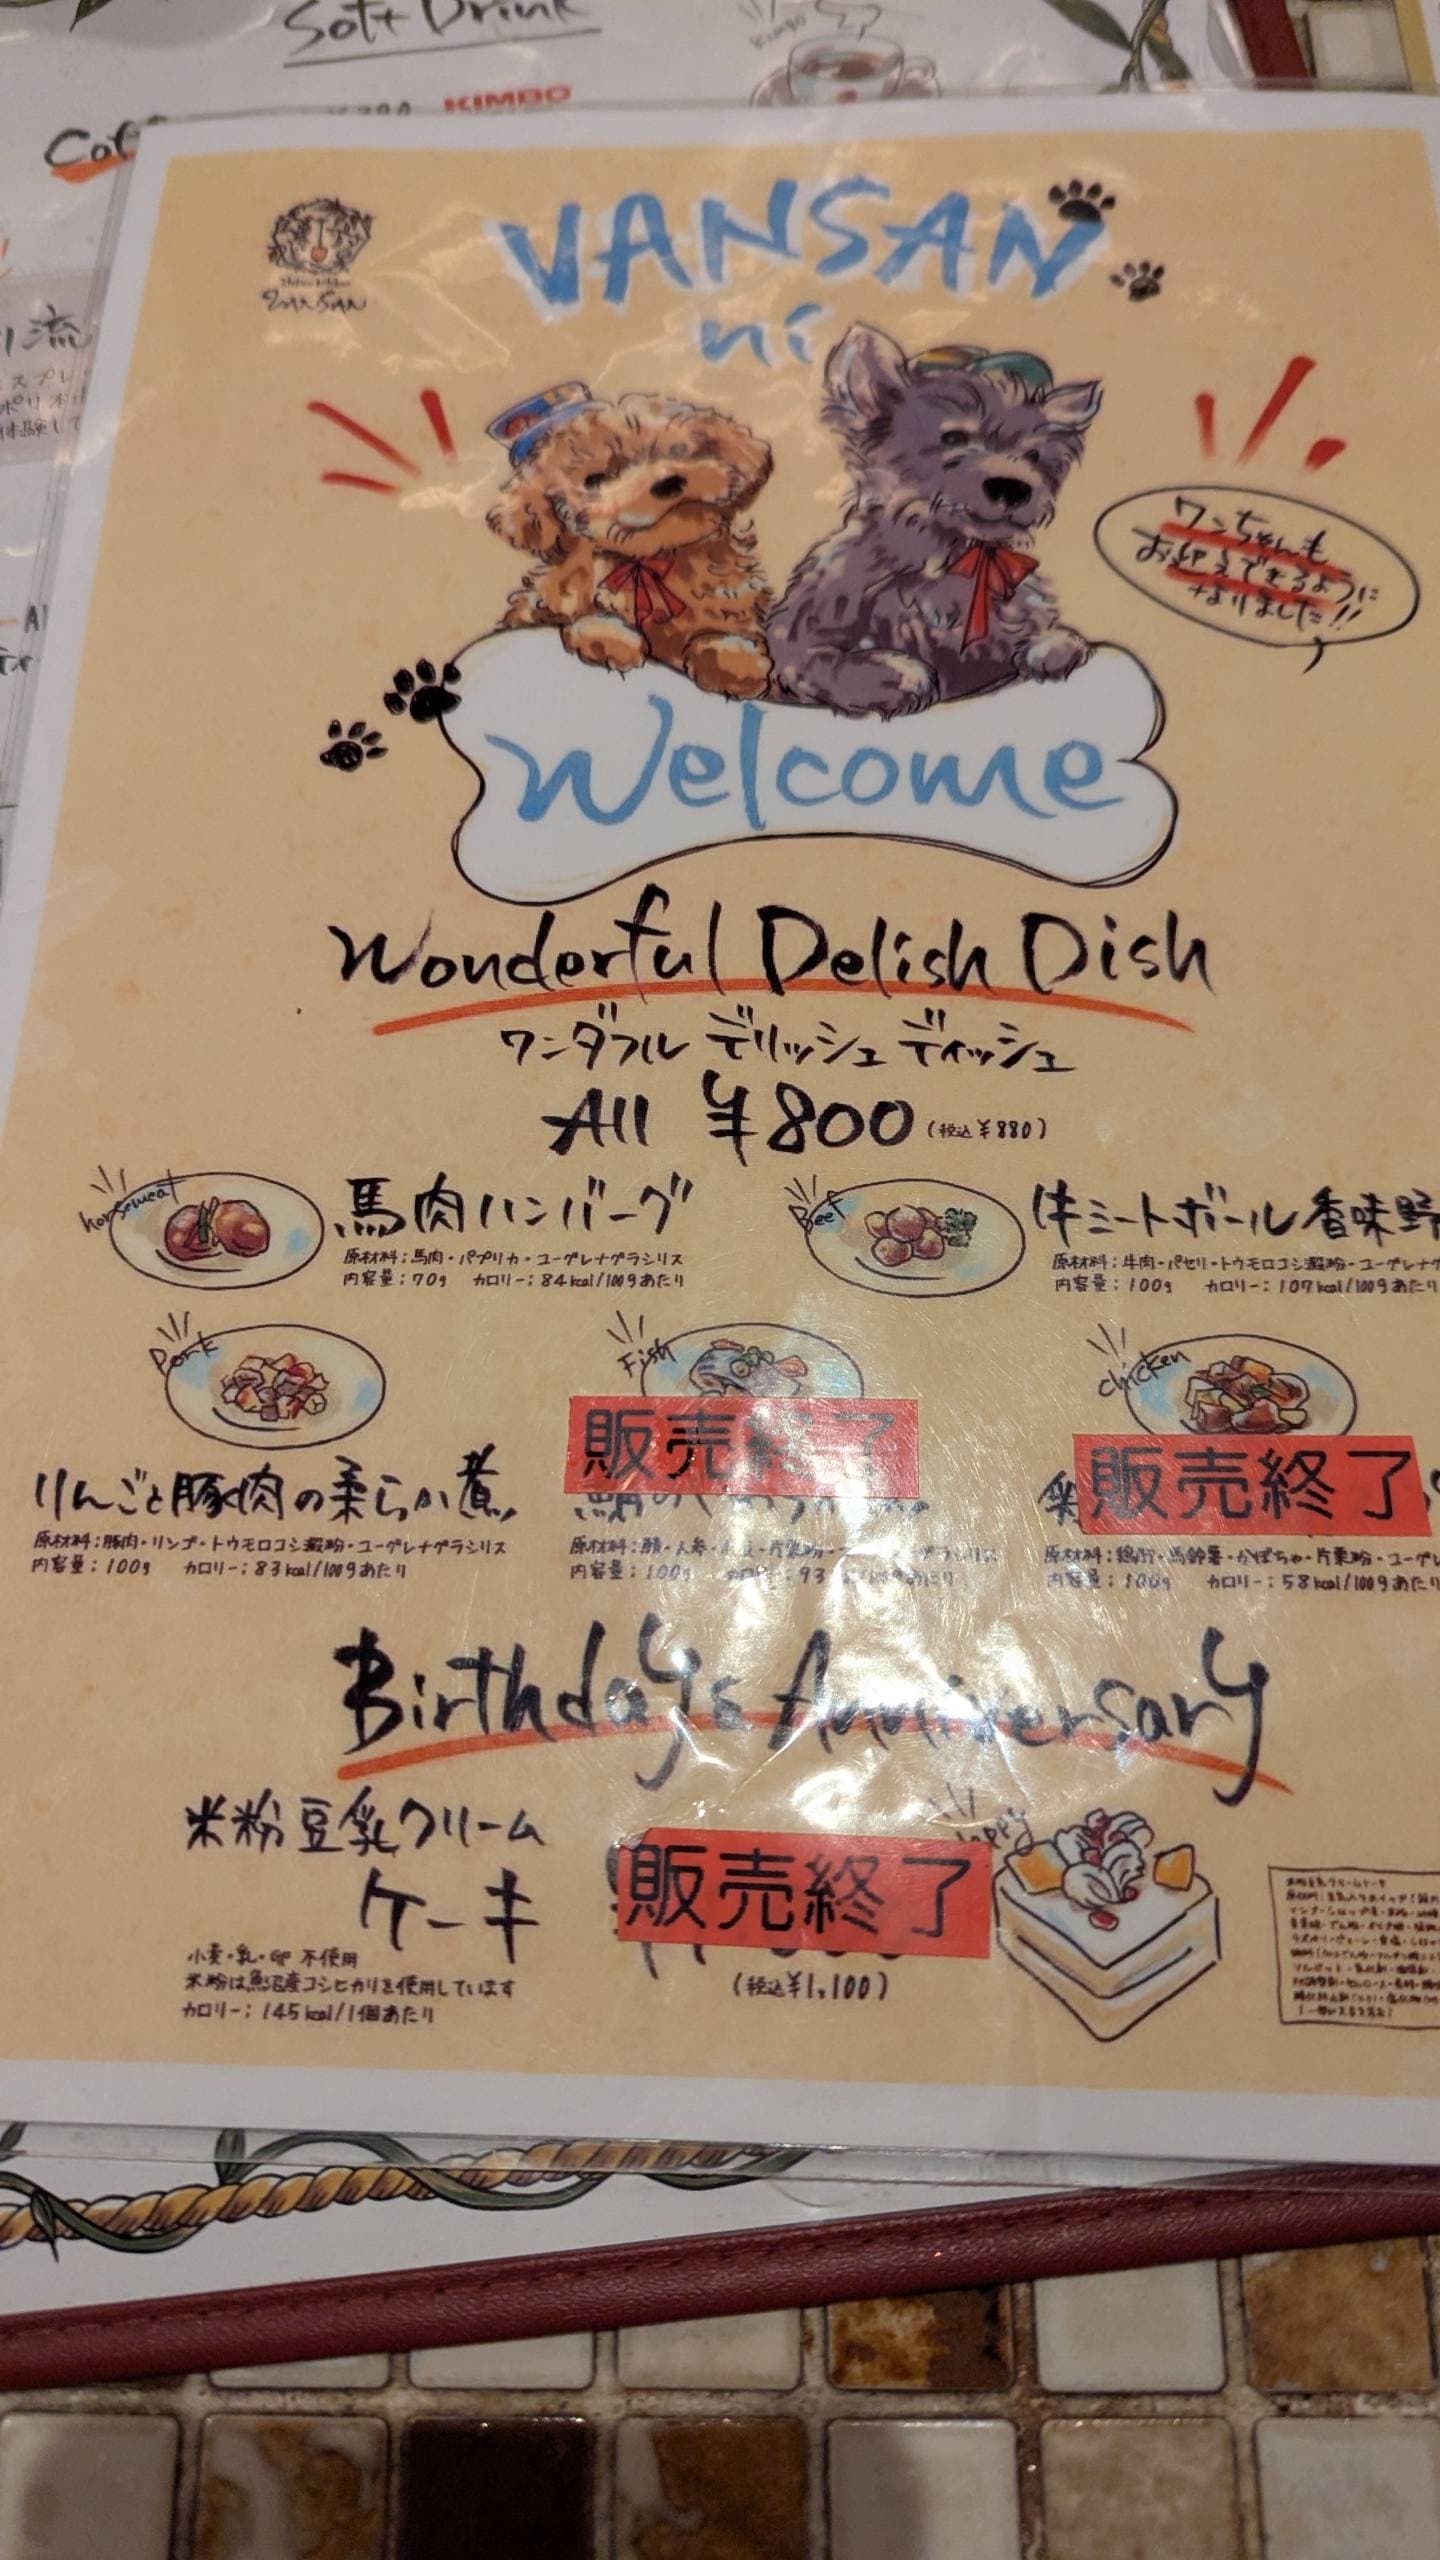 Soft Drink
KIMBO
流
VANSAN
VANSAN
ni
ワンちゃんも
お迎えできるように
なりました!!
Welcome
Wonderful Delish Dish
ワンダフル デリッシュ ディッシュ
All ¥800 (税込¥880)
horsemeat
馬肉ハンバーグ
原材料:馬肉・パプリカ・ユーグレナグラシリス
内容量:70g カロリー:84kcal/100gあたり
Beef
牛ミートボール香味野
原材料:牛肉・パセリ・トウモロコシ澱粉・ユーグレナ
内容量:100g カロリー:107kcal/100gあたり
Pork
りんごと豚肉の柔らか煮
原材料:豚肉・リンゴ・トウモロコシ澱粉・ユーグレナグラシリス
内容量:100g カロリー:83kcal/100gあたり
Fish
販売終了
原材料:鯖・人参
内容量:100g
chicken
販売終了
原材料:鶏肝・馬鈴薯・かぼちゃ・片栗粉・ユーグレ
内容量:100g カロリー:58kcal/100gあたり
Birthday & Anniversary
米粉豆乳クリーム
ケーキ
販売終了
(税込¥1,100)
happy
小麦・乳・卵 不使用
米粉は魚沼産コシヒカリを使用しています
カロリー:145kcal/1個あたり